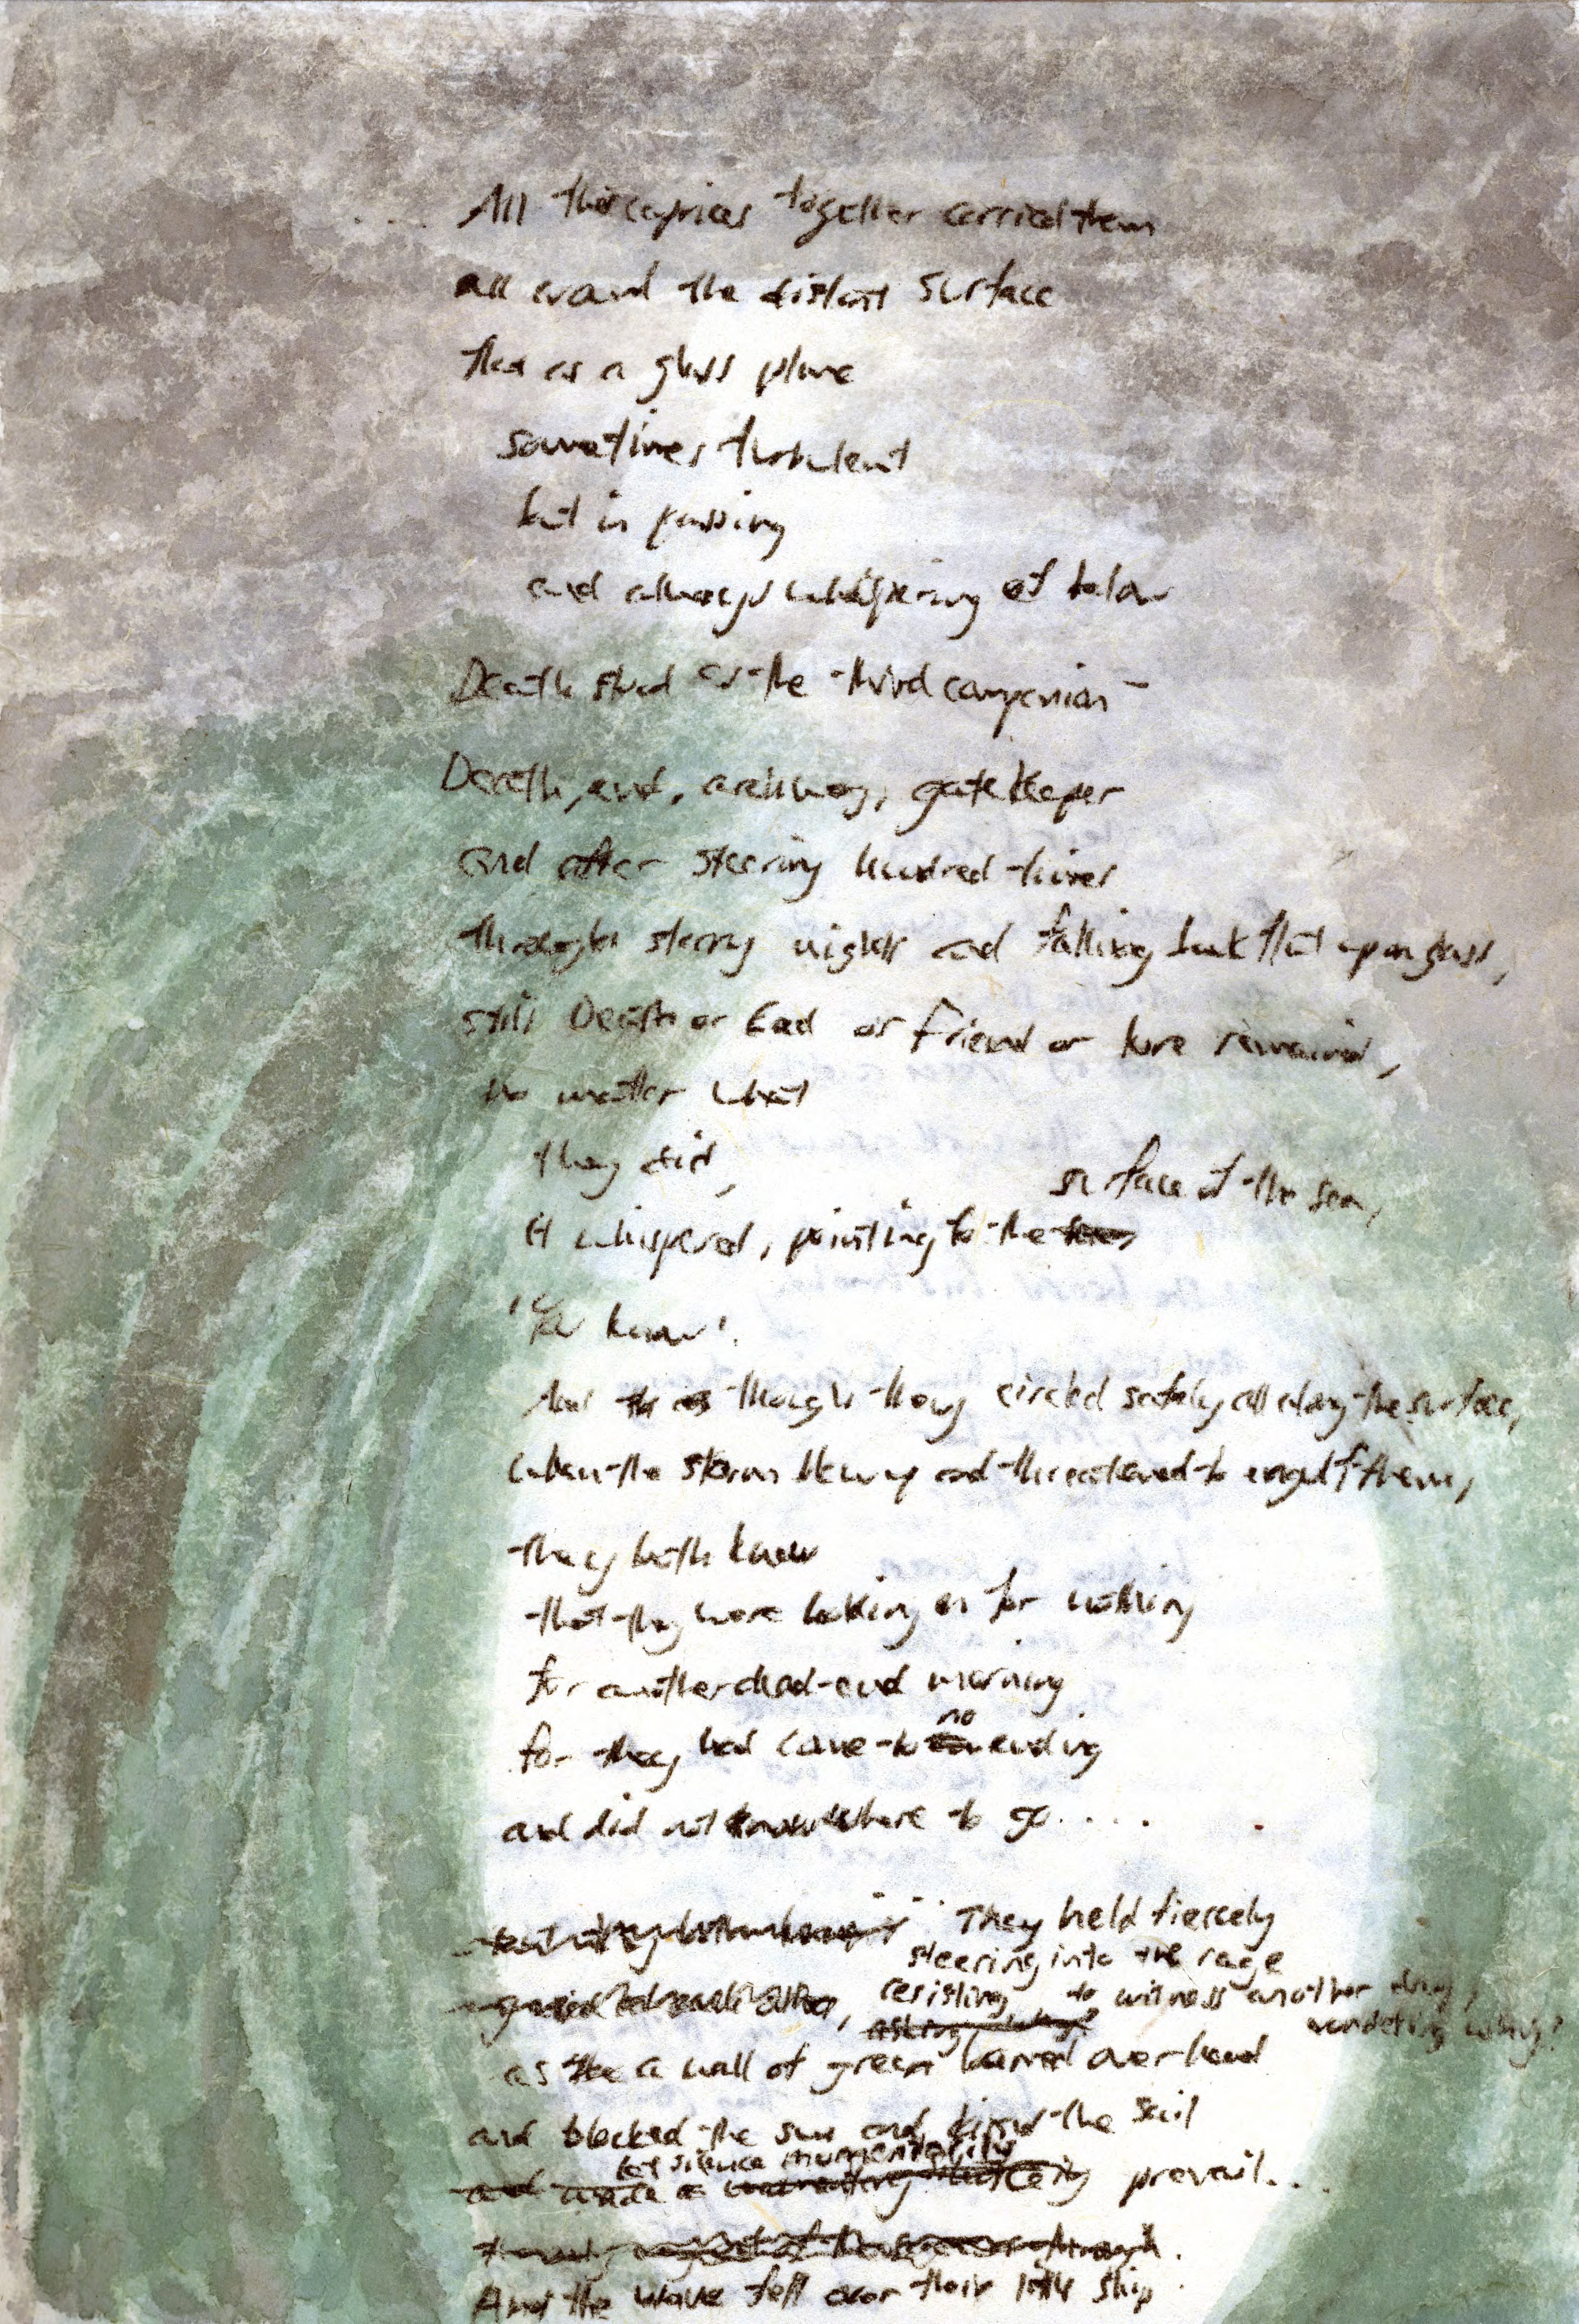 All together carried them
all around the distant surface
flat as a glass plane
sometimes turbulent
but in passing
and always whispering of below
Death stood as the third companion –
Death, end, archway, gatekeeper
and after steering hundred times
through starry nights and falling back flat upon glass,
still Death or End or Friend or love remained,
no matter what
they did,
surface of the sea,
it whispered, pointing to the
'You know'.
And though they circled safely all along the surface,
when the storm blew up and threatened to engulf them,
they both knew
that they were looking on for nothing
for another dead-end morning
no
for they had come to ending
and did not know where to go.....
They held fiercely
steering into the rage
resisting to witness another day,
asking why wondering why?
as a wall of green over head
and blocked the sun and kissed the sail
let silence momentarily
and made a prevail...
And the wave fell over their little ship.